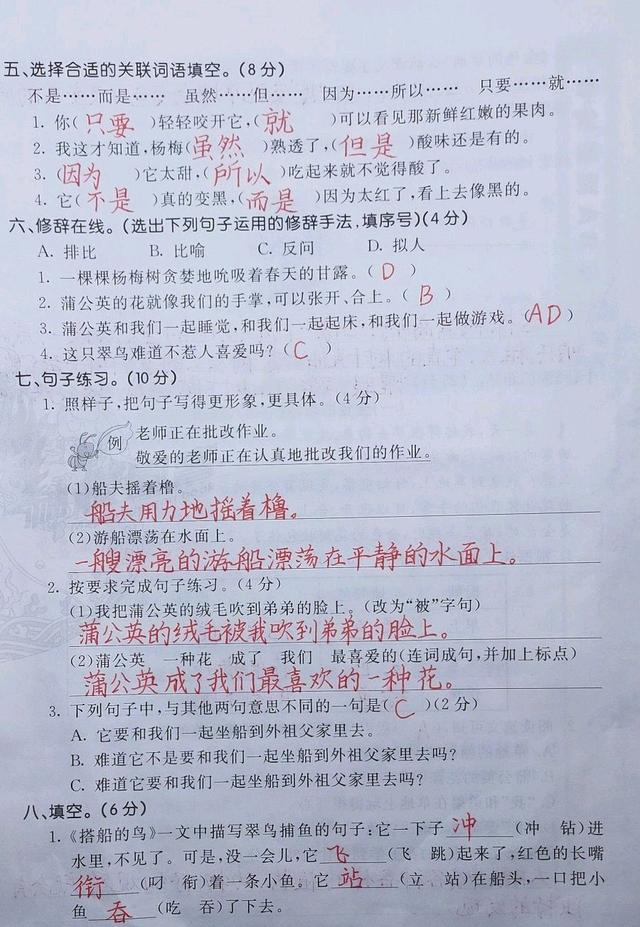 五、选择合适的关联词语填空。(8分)
不是……而是…… 虽然……但…… 因为……所以…… 只要……就……
1. 你( 只要 )轻轻咬开它,( 就 )可以看见那新鲜红嫩的果肉。
2. 我这才知道,杨梅(虽然)熟透了,(但是)酸味还是有的。
3. (因为)它太甜,(所以)吃起来就不觉得酸了。
4. 它(不是)真的变黑,(而是)因为太红了,看上去像黑的。
六、修辞在线。(选出下列句子运用的修辞手法,填序号)(4分)
A. 排比 B. 比喻 C. 反问 D. 拟人
1. 一棵棵杨梅树贪婪地吮吸着春天的甘露。( D )
2. 蒲公英的花就像我们的手掌,可以张开、合上。( B )
3. 蒲公英和我们一起睡觉,和我们一起起床,和我们一起做游戏。(AD)
4. 这只翠鸟难道不惹人喜爱吗?( C )
七、句子练习。(10分)
1. 照样子,把句子写得更形象,更具体。(4分)
例 老师正在批改作业。
敬爱的老师正在认真地批改我们的作业。
(1)船夫摇着橹。
船夫用力地摇着橹。
(2)游船漂荡在水面上。
一艘漂亮的游船漂荡在平静的水面上。
2. 按要求完成句子练习。(4分)
(1)我把蒲公英的绒毛吹到弟弟的脸上。(改为“被”字句)
蒲公英的绒毛被我吹到弟弟的脸上。
(2)蒲公英 一种花 成了 我们 最喜爱的(连词成句,并加上标点)
蒲公英成了我们最喜欢的一种花。
3. 下列句子中,与其他两句意思不同的一句是( C )(2分)
A. 它要和我们一起坐船到外祖父家里去。
B. 难道它不是要和我们一起坐船到外祖父家里去吗?
C. 难道它要和我们一起坐船到外祖父家里去吗?
八、填空。(6分)
1.《搭船的鸟》一文中描写翠鸟捕鱼的句子:它一下子 冲 (冲 钻)进
水里,不见了。可是,没一会儿,它 飞 (飞 跳)起来了,红色的长嘴
衔 (叼 衔)着一条小鱼。它 站 (立 站)在船头,一口把小
鱼 吞 (吃 吞)了下去。